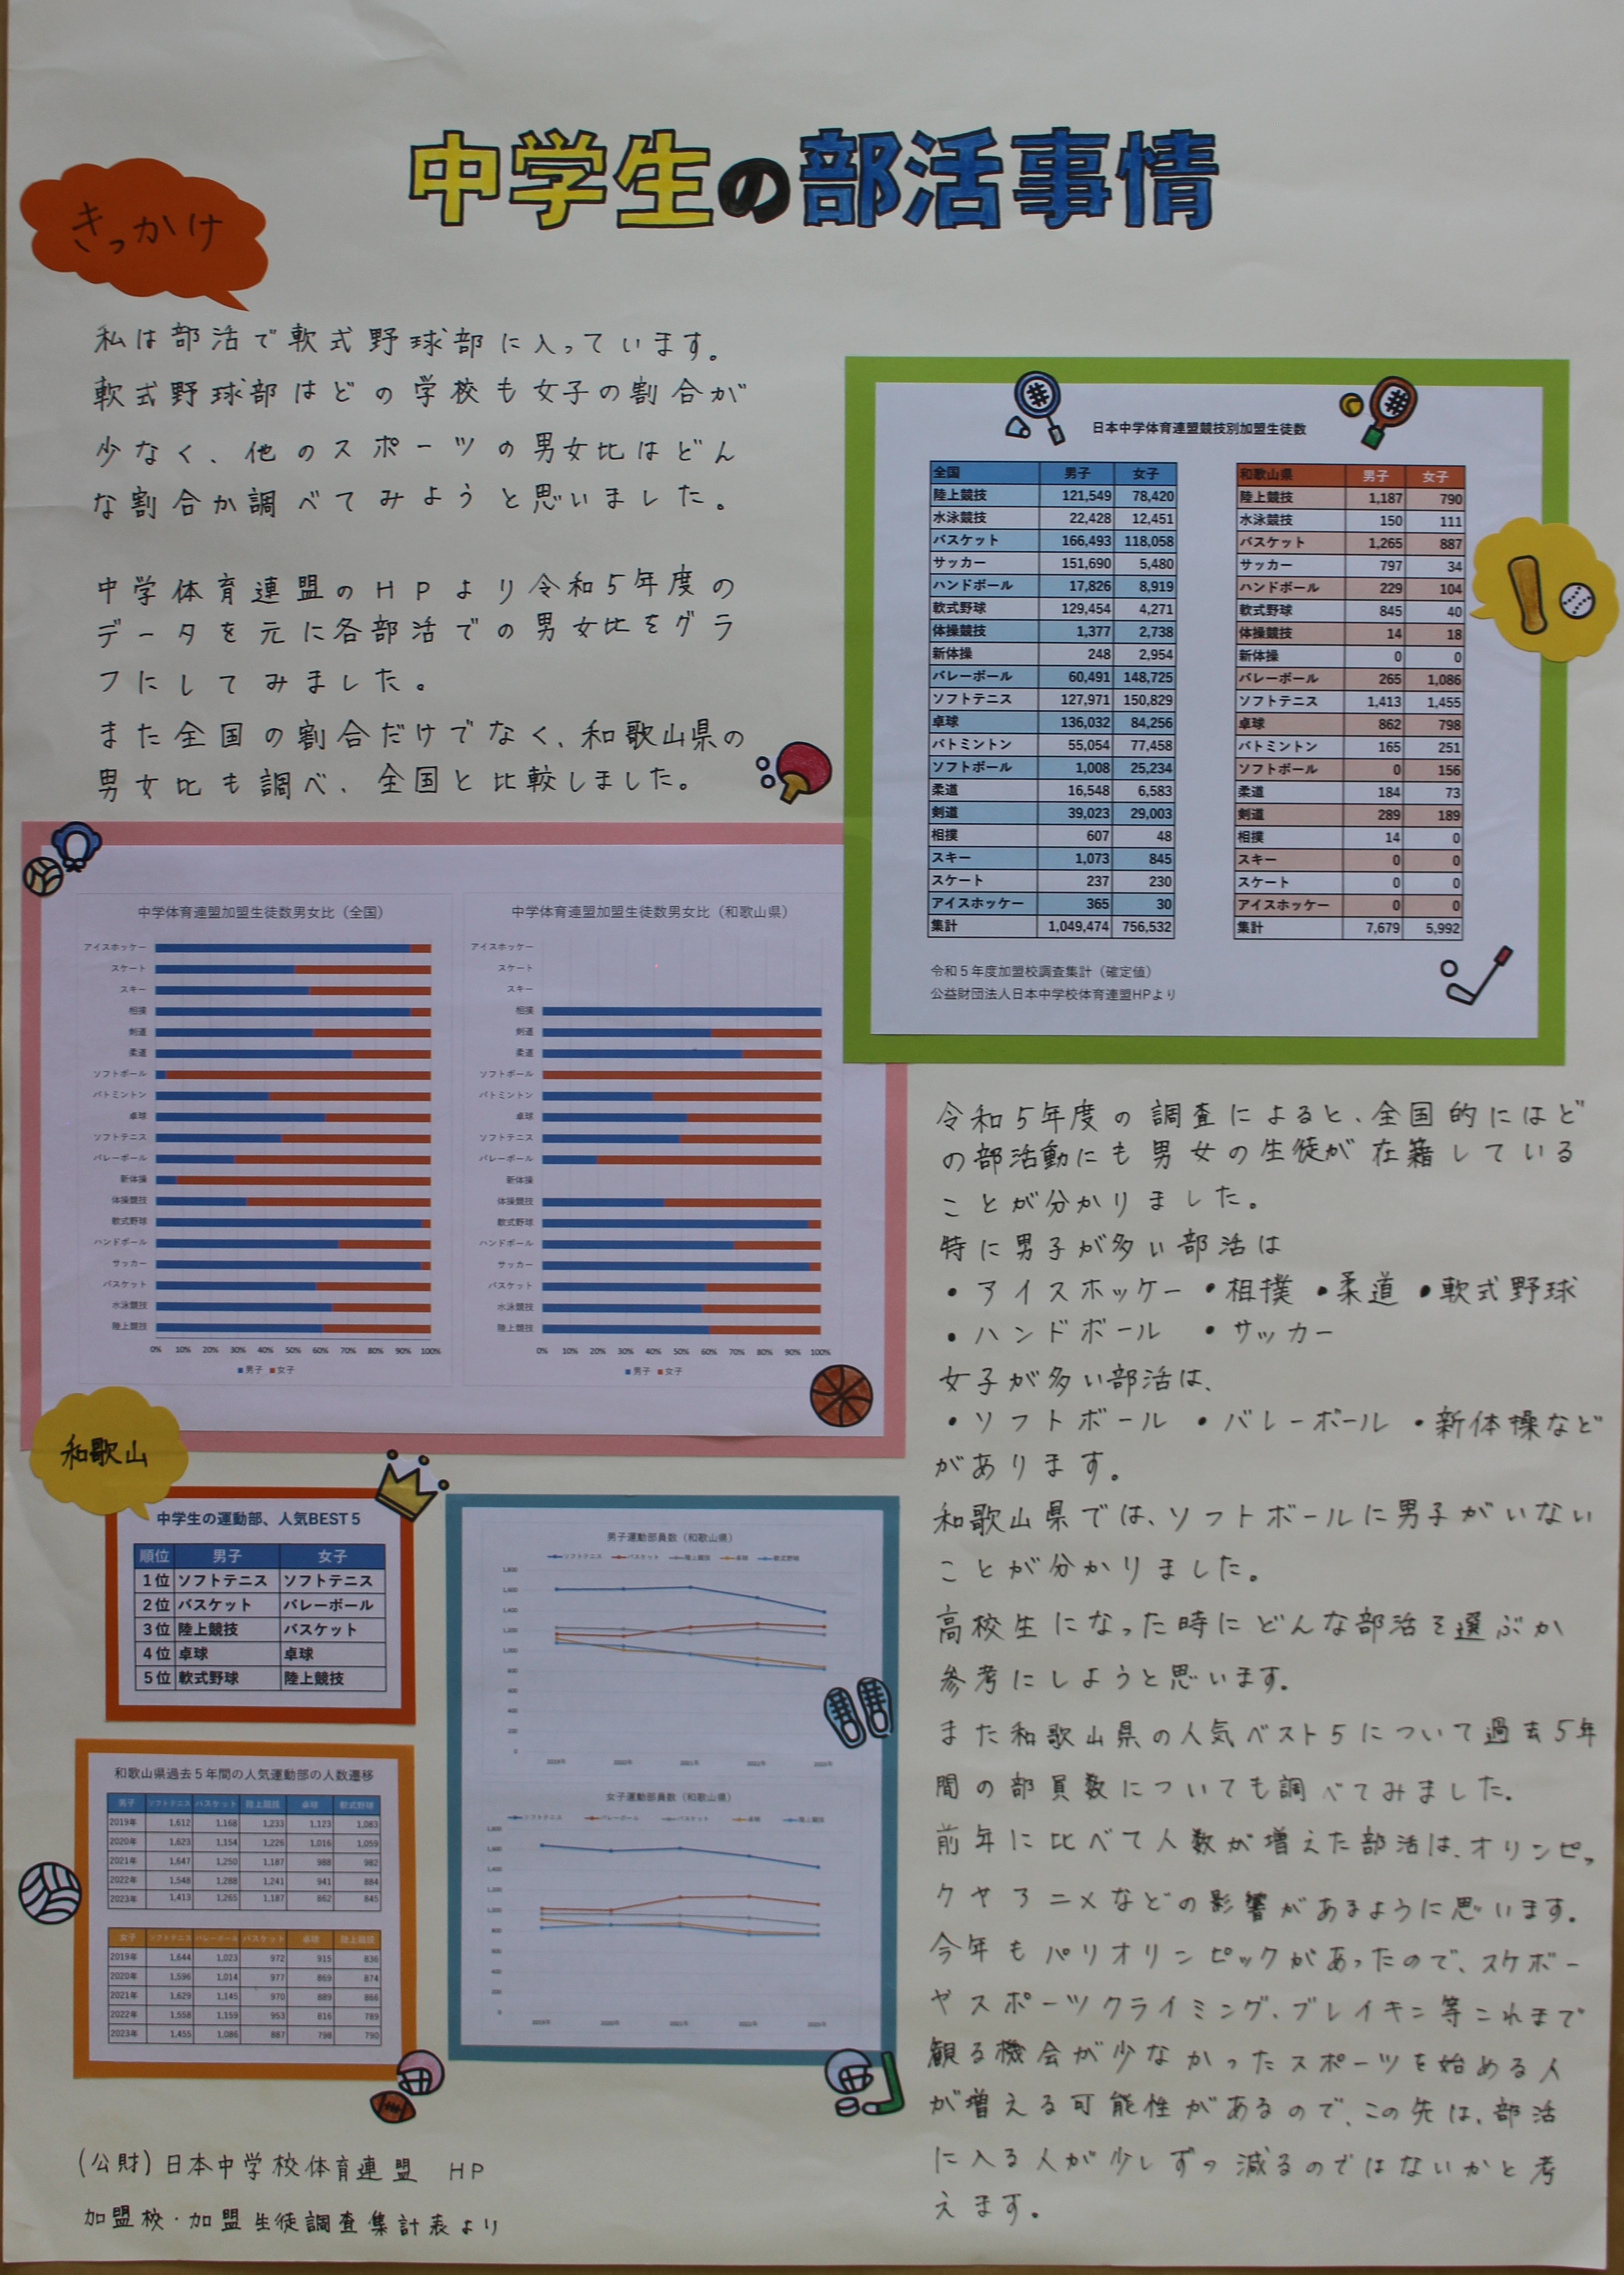 中学生の部活事情
きっかけ
私は部活で軟式野球部に入っています。
軟式野球部はどの学校も女子の割合が
少なく、他のスポーツの男女比はどん
な割合か調べてみようと思いました。
中学体育連盟のHPより令和5年度の
データを元に各部活での男女比をグラ
フにしてみました。
また全国の割合だけでなく、和歌山県の
男女比も調べ、全国と比較しました。
日本中学体育連盟競技別加盟生徒数
全国 男子 女子
陸上競技 121,549 78,420
水泳競技 22,428 12,451
バスケット 166,493 118,058
サッカー 151,690 5,480
ハンドボール 17,826 8,919
軟式野球 129,454 4,271
体操競技 1,377 2,738
新体操 248 2,954
バレーボール 60,491 148,725
ソフトテニス 127,971 150,829
卓球 136,032 84,256
バトミントン 55,054 77,458
ソフトボール 1,008 25,234
柔道 16,548 6,583
剣道 39,023 29,003
相撲 607 48
スキー 1,073 845
スケート 237 230
アイスホッケー 365 30
集計 1,049,474 756,532
和歌山県 男子 女子
陸上競技 1,187 790
水泳競技 150 111
バスケット 1,265 887
サッカー 797 34
ハンドボール 229 104
軟式野球 845 40
体操競技 14 18
新体操 0 0
バレーボール 265 1,086
ソフトテニス 1,413 1,455
卓球 862 798
バトミントン 165 251
ソフトボール 0 156
柔道 184 73
剣道 289 189
相撲 14 0
スキー 0 0
スケート 0 0
アイスホッケー 0 0
集計 7,679 5,992
令和5年度加盟校調査集計（確定値）
公益財団法人日本中学校体育連盟HPより
中学体育連盟加盟生徒数男女比（全国）
アイスホッケー
スケート
スキー
相撲
剣道
柔道
ソフトボール
バトミントン
卓球
ソフトテニス
バレーボール
新体操
体操競技
軟式野球
ハンドボール
サッカー
バスケット
水泳競技
陸上競技
0% 10% 20% 30% 40% 50% 60% 70% 80% 90% 100%
男子 女子
中学体育連盟加盟生徒数男女比（和歌山県）
アイスホッケー
スケート
スキー
相撲
剣道
柔道
ソフトボール
バトミントン
卓球
ソフトテニス
バレーボール
新体操
体操競技
軟式野球
ハンドボール
サッカー
バスケット
水泳競技
陸上競技
0% 10% 20% 30% 40% 50% 60% 70% 80% 90% 100%
男子 女子
和歌山
中学生の運動部、人気BEST５
順位 男子 女子
1位 ソフトテニス ソフトテニス
2位 バスケット バレーボール
3位 陸上競技 バスケット
4位 卓球 卓球
5位 軟式野球 陸上競技
和歌山県過去５年間の人気運動部の人数遷移
男子 ソフトテニス バスケット 陸上競技 卓球 軟式野球
2019年 1,612 1,168 1,233 1,123 1,083
2020年 1,623 1,154 1,226 1,016 1,059
2021年 1,647 1,250 1,187 988 982
2022年 1,548 1,288 1,241 941 884
2023年 1,413 1,265 1,187 862 845
女子 ソフトテニス バレーボール バスケット 卓球 陸上競技
2019年 1,644 1,023 972 915 836
2020年 1,596 1,014 977 869 874
2021年 1,629 1,145 970 889 866
2022年 1,558 1,159 953 816 789
2023年 1,455 1,086 887 798 790
男子運動部員数（和歌山県）
ソフトテニス バスケット 陸上競技 卓球 軟式野球
1,800
1,600
1,400
1,200
1,000
800
600
400
200
0
2019年 2020年 2021年 2022年 2023年
女子運動部員数（和歌山県）
ソフトテニス バレーボール バスケット 卓球 陸上競技
1,800
1,600
1,400
1,200
1,000
800
600
400
200
0
2019年 2020年 2021年 2022年 2023年
(公財)日本中学校体育連盟 HP
加盟校・加盟生徒調査集計表より
令和5年度の調査によると、全国的にはど
の部活動にも男女の生徒が在籍している
ことが分かりました。
特に男子が多い部活は
・アイスホッケー ・相撲 ・柔道 ・軟式野球
・ハンドボール ・サッカー
女子が多い部活は、
・ソフトボール ・バレーボール ・新体操など
があります。
和歌山県では、ソフトボールに男子がいない
ことが分かりました。
高校生になった時にどんな部活を選ぶか
参考にしようと思います。
また和歌山県の人気ベスト5について過去5年
間の部員数についても調べてみました。
前年に比べて人数が増えた部活は、オリンピッ
クやアニメなどの影響があるように思います。
今年もパリオリンピックがあったので、スケボー
やスポーツクライミング、ブレイキン等これまで
観る機会が少なかったスポーツを始める人
が増える可能性があるので、この先は、部活
に入る人が少しずつ減るのではないかと考
えます。